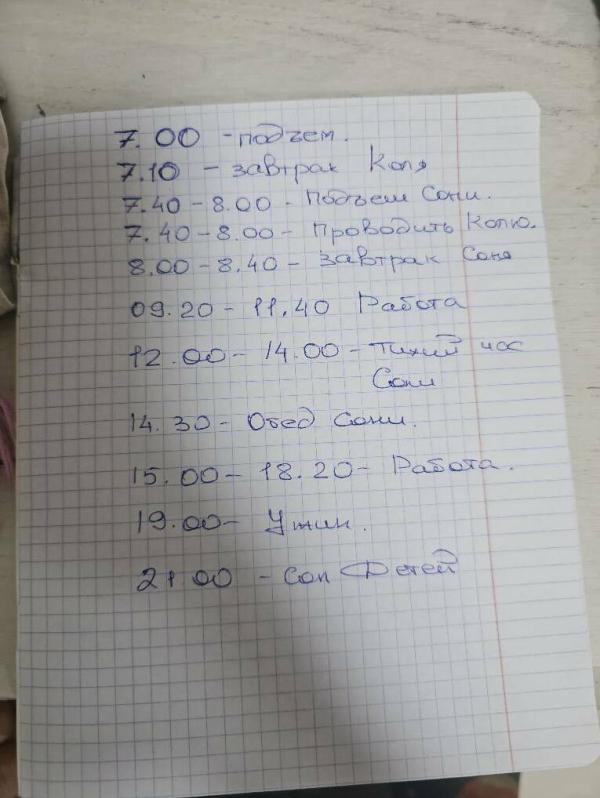 7.00 - подъем.
7.10 - завтрак Коля
7.40 - 8.00 - Подъем Сони.
7.40 - 8.00 - Проводить Колю.
8.00 - 8.40 - завтрак Соня
09.20 - 11.40 Работа
12.00 - 14.00 - Тихий час
Сони
14.30 - Обед Сони.
15.00 - 18.20 - Работа.
19.00 - Ужин.
21 00 - Сон Детей